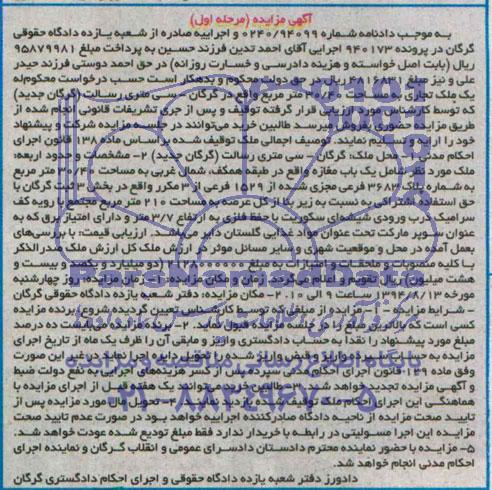 آگهی مزایده (مرحله اول)
به موجب دادنامه شماره ۰۲۴۰/۹۴۰۹۹ و اجراییه صادره از شعبه یازده دادگاه حقوقی
گرگان در پرونده ۹۴۰۱۷۳ اجرایی آقای احمد تدین فرزند حسین به پرداخت مبلغ ۹۵۸۷۹۹۸۱
ریال (بابت اصل خواسته و هزینه دادرسی و خسارت روزانه) در حق احمد دوستی فرزند حیدر
علی و نیز مبلغ ۴۸۱۶۸۳۱ ریال در حق دولت محکوم و بدهکار است حسب درخواست محکوم‌له
یک ملک تجاری به مساحت ۳۰/۴۰ متر مربع واقع در گرگان - سی متری رسالت (گرگان جدید)
که توسط کارشناس مورد ارزیابی قرار گرفته توقیف و پس از جری تشریفات قانونی انجام شده از
طریق مزایده حضوری بفروش میرسد طالبین خرید می‌توانند در جلسه مزایده شرکت و پیشنهاد
خود را ارایه و تسلیم نمایند. توصیف اجمالی ملک توقیف شده: بر اساس ماده ۱۳۸ قانون اجرای
احکام مدنی ۱- محل ملک: گرگان - سی متری رسالت (گرگان جدید) ۲- مشخصات و حدود اربعه:
ملک مورد نظر شامل یک باب مغازه واقع در طبقه همکف، شمال غربی به مساحت ۳۰/۴۰ متر مربع
به شماره پلاک ۳۶۸۲ فرعی مجزی شده از ۱۵۲۹ فرعی از ۲ مکرر واقع در بخش ۳ ثبت گرگان با
حق استفاده اشتراکی به نسبت به زیر بنا از کل عرصه به مساحت ۲۱۰ متر مربع مجتمع با رویه کف
سرامیک درب ورودی شیشه‌ای سکوریت با حفظ فلزی به ارتفاع ۳/۷ متر و دارای امتیاز برق که به
عنوان سوپر مارکت تحت عنوان مواد غذایی گلستان دایر می‌باشد. ارزیابی قیمت: با بررسی‌های
بعمل آمده در محل و موقعیت شهری و سایر مسائل موثر در ارزش ملک کل ارزش ملک صدرالذکر
با کلیه منصوبات و ملحقات و امتیازات به مبلغ ۲۱۲۸۰۰۰۰۰۰ (دو میلیارد و یکصد و بیست و
هشت میلیون) ریال تقویم و اعلام می‌گردد. زمان و مکان مزایده: ۱- زمان مزایده: روز چهارشنبه
مورخه ۱۳۹۴/۸/۱۳ ساعت ۹ الی ۱۰. ۲- مکان مزایده: دفتر شعبه یازده دادگاه حقوقی گرگان
- شرایط مزایده ۱- مزایده از مبلغی که توسط کارشناس تعیین گردیده شروع برنده مزایده
کسی است که بالاترین مبلغ را در جلسه مزایده قبول نماید. ۲- برنده مزایده می‌بایست ده درصد
مبلغ مورد پیشنهاد را نقدا به حساب دادگستری واریز و مابقی آن را ظرف یک ماه از تاریخ اجرای
مزایده به حساب سپرده واریز و قبض واریز شده را تحویل دایره اجرا نماید در غیر این صورت
وفق ماده ۱۲۹ قانون اجرای احکام مدنی سپرده پس از کسر هزینه‌های اجرایی به نفع دولت ضبط
و آگهی مزایده تجدید خواهد شد. ۳- طالبین خرید می‌توانند یک هفته قبل از اجرای مزایده با
هماهنگی این اجرای احکام ملک توقیف شده بازدید نمایند. ۴- تحویل مال مورد مزایده پس از
تایید صحت مزایده از ناحیه دادگاه صادرکننده اجراییه خواهد بود در صورت عدم تایید صحت
مزایده این اجرا مسولیتی در رابطه با خریدار ندارد فقط مبلغ تودیع شده عودت خواهد شد.
۵- مزایده با حضور نماینده محترم دادستان دادسرای عمومی و انقلاب گرگان و نماینده اجرای
احکام مدنی انجام خواهد شد.
دادورز دفتر شعبه یازده دادگاه حقوقی و اجرای احکام دادگستری گرگان
ParsNamadData
۰۲۱-۸۸۳۴۹۶۷۰-۵